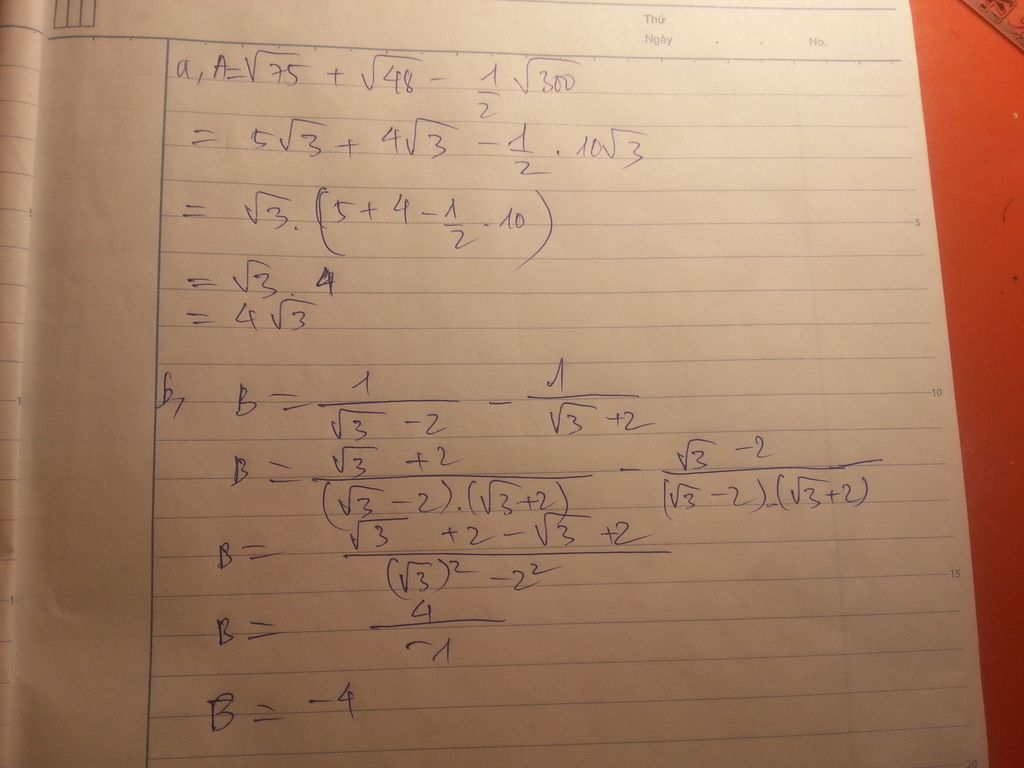 Thứ
Ngày . . No.
a, A = √75 + √48 - 1/2 √300
= 5√3 + 4√3 - 1/2 . 10√3
= √3 . (5 + 4 - 1/2 . 10)
= √3 . 4
= 4√3
b, B = 1/(√3 - 2) - 1/(√3 + 2)
B = (√3 + 2)/((√3 - 2).(√3 + 2)) - (√3 - 2)/((√3 - 2).(√3 + 2))
B = (√3 + 2 - √3 + 2)/((√3)² - 2²)
B = 4/-1
B = -4
5
10
15
20